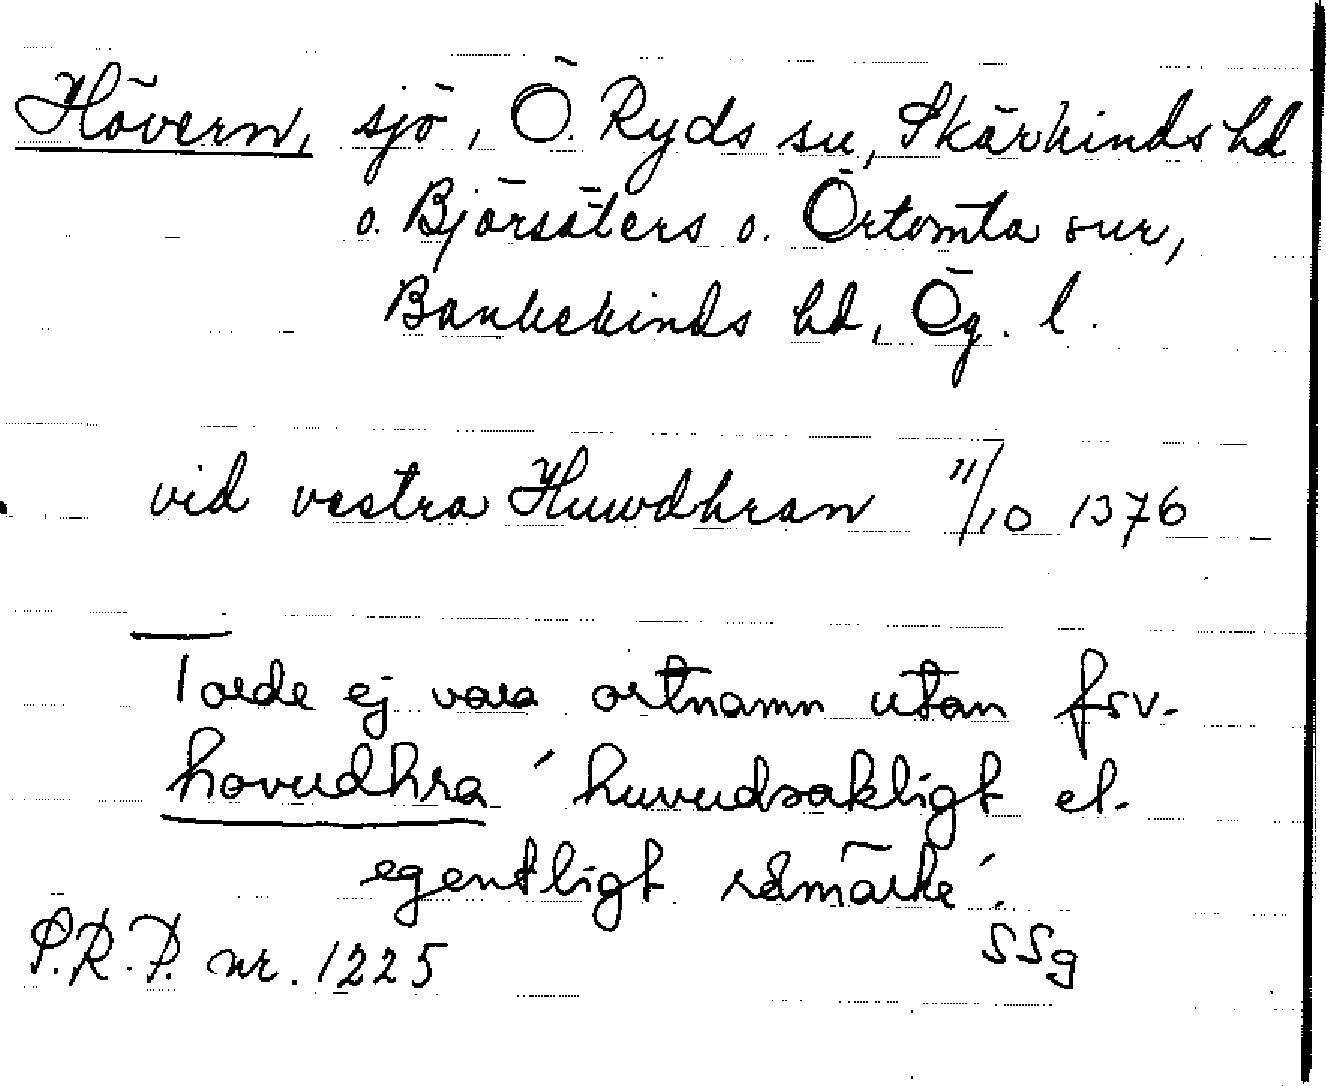 Hövern, sjö, Ö. Ryds sn, Skärkinds hd
o. Björsäters o. Örtomta snr,
Bankekinds hd, Ög. l.
vid vestra Huwdhran 11/10 1376
Torde ej vara ortnamn utan fsv.
hovudhra ´huvudsakligt el.
egentligt råmärke´.
SSg
P.R.P. nr. 1225